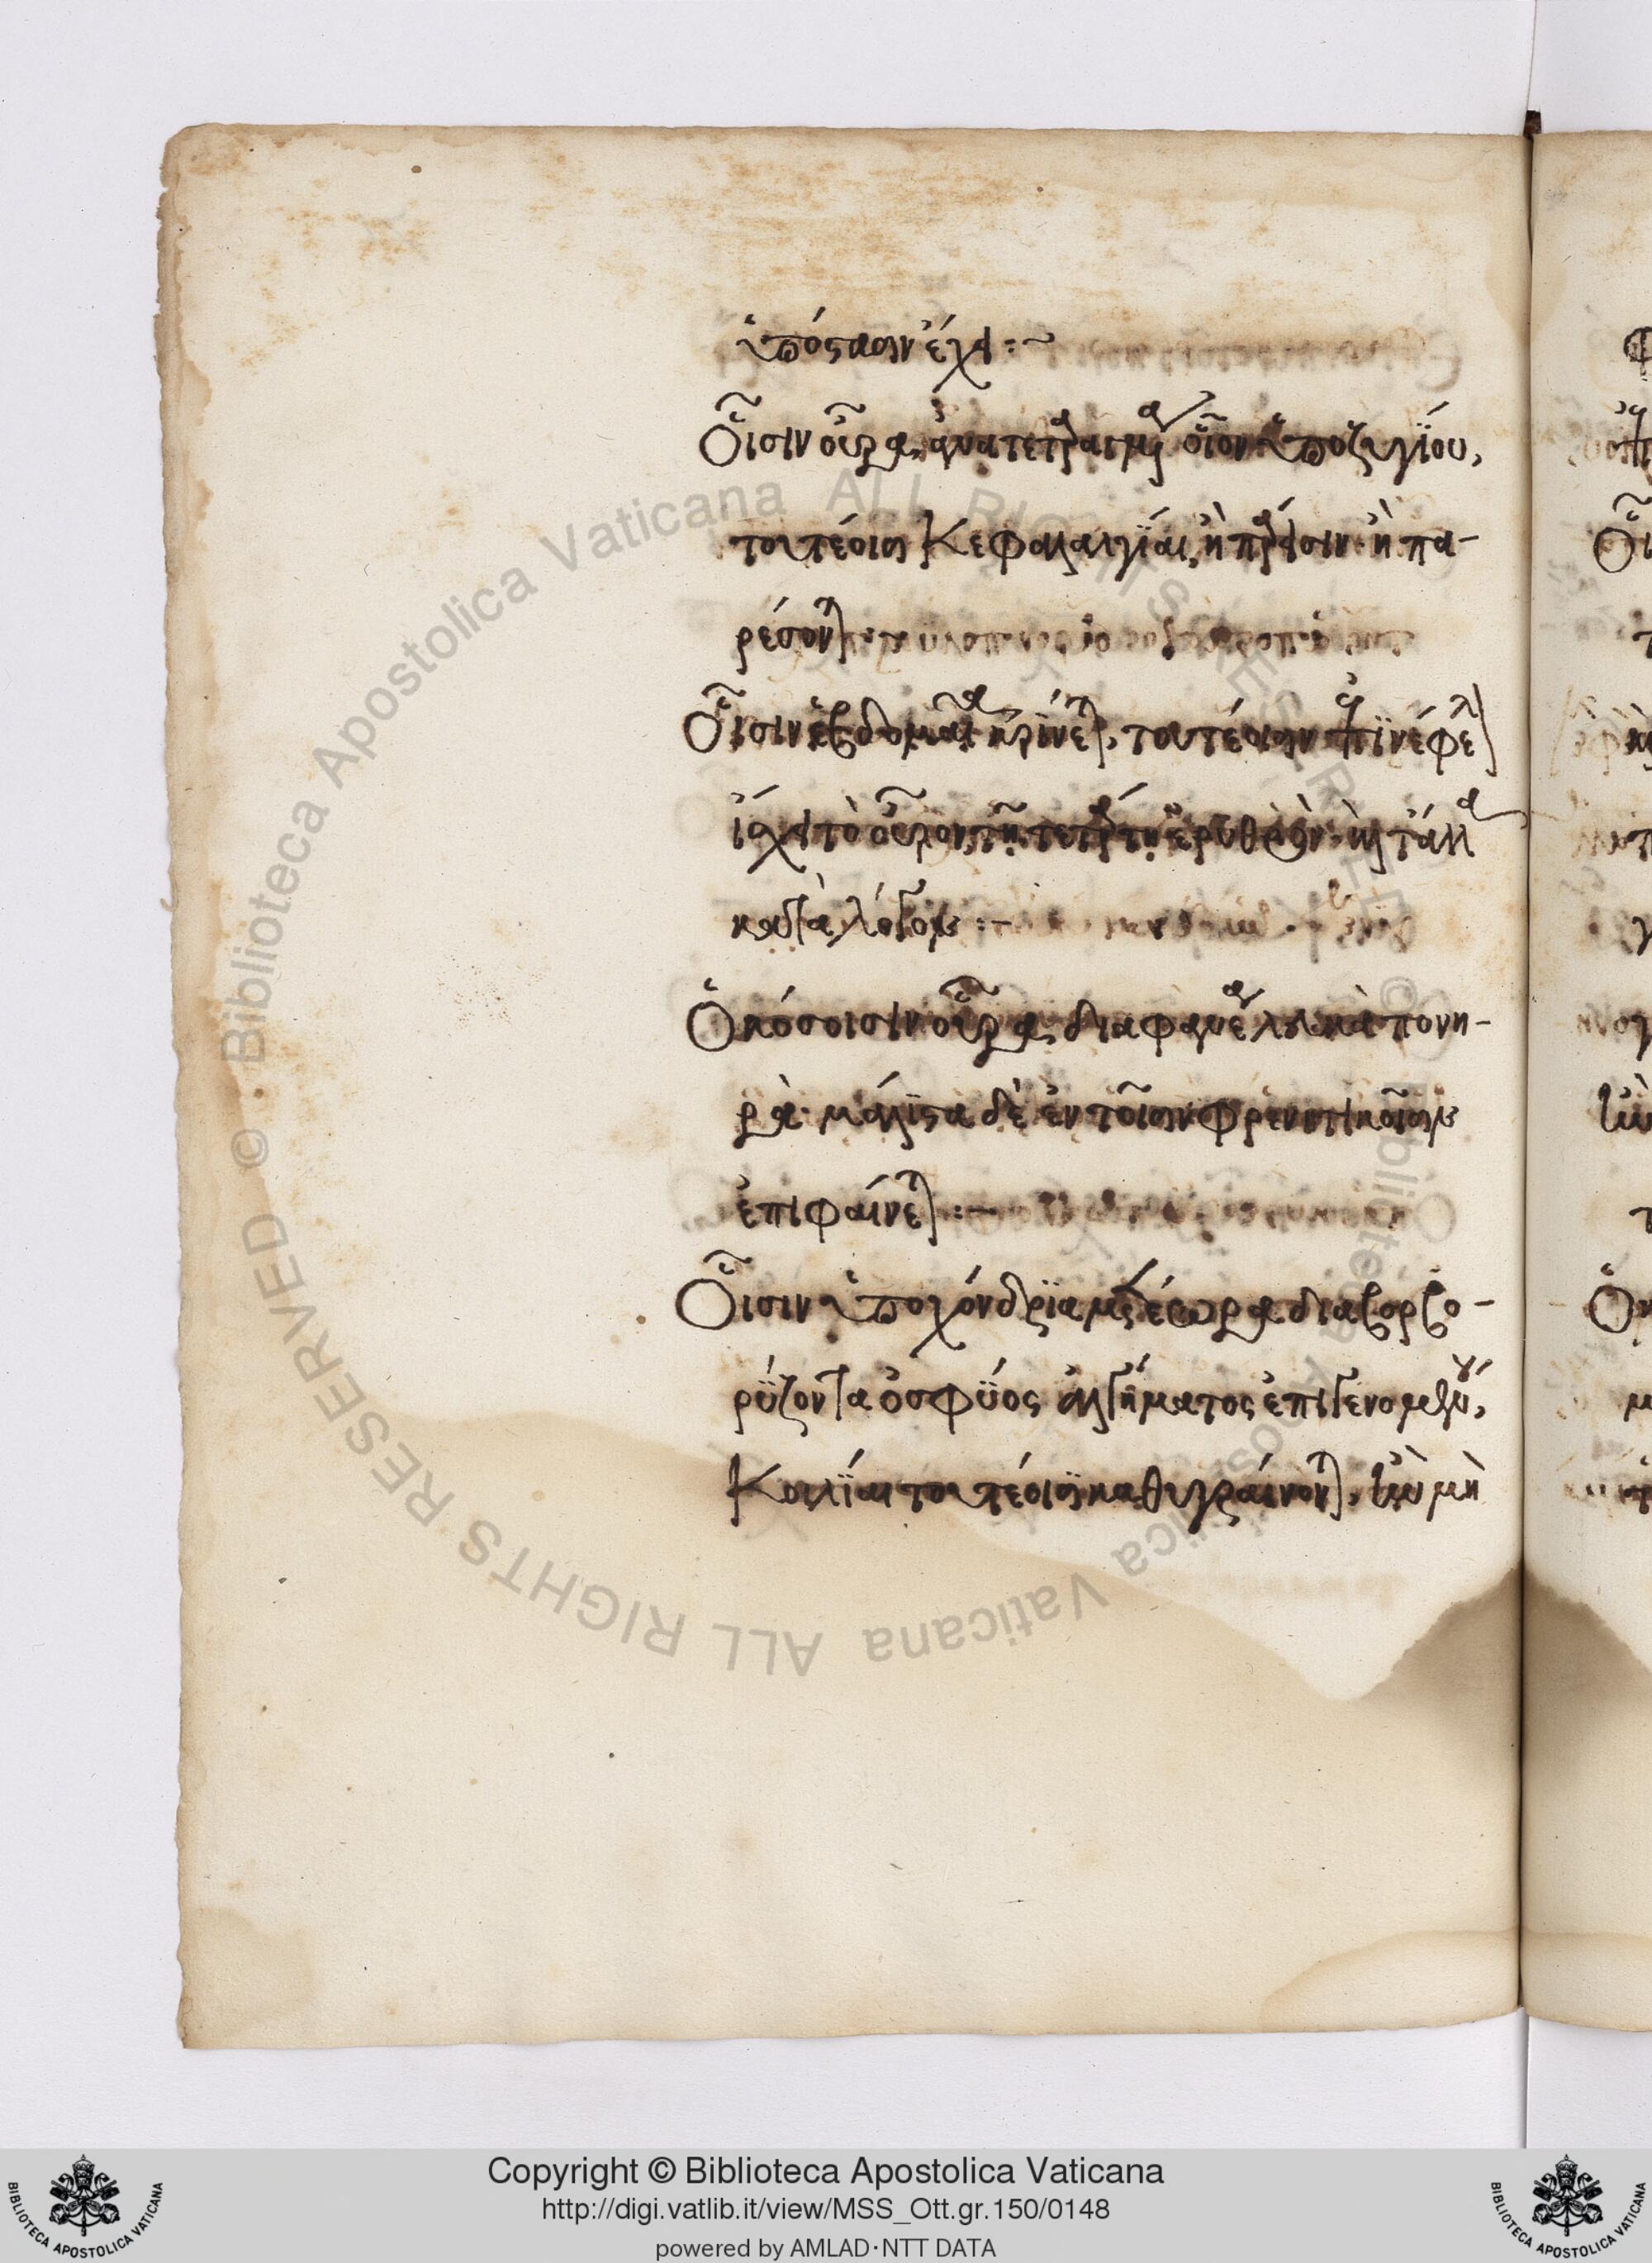 ὑπόστασιν ἔχει :~
Οἷσιν οὖρα ἀνατεταραγμένα οἷον ὑποζυγίου,
τουτέοισι κεφαλαλγίαι ἢ πάρεισιν ἢ πα-
ρέσονται
Οἷσιν ἑβδομαῖα κρίνεται, τουτέοισιν ἐπινέφελον
ἴσχει τὸ οὖρον τῇ τετάρτῃ ἐρυθρὸν· καὶ τἄλλα
κατὰ λόγον :-
Ὁκόσοισιν οὖρα διαφανέα λευκὰ πονη-
ρὰ· μάλιστα δὲ ἐν τοῖσιν φρενιτικοῖσιν
ἐπιφαίνεται :-
Οἷσιν ὑποχόνδρια μετέωρα διαβορβο-
ρύζοντα ὀσφύος ἀλγήματος ἐπιγενομένου,
κοιλίαι τουτέοισι καθυγραίνονται, ἢν μὴ
© Biblioteca Apostolica Vaticana ALL RIGHTS RESERVED © Biblioteca Apostolica Vaticana ALL RIGHTS RESERVED
Copyright © Biblioteca Apostolica Vaticana
http://digi.vatlib.it/view/MSS_Ott.gr.150/0148
powered by AMLAD·NTT DATA
BIBLIOTECA APOSTOLICA VATICANA
BIBLIOTECA APOSTOLICA VATICANA